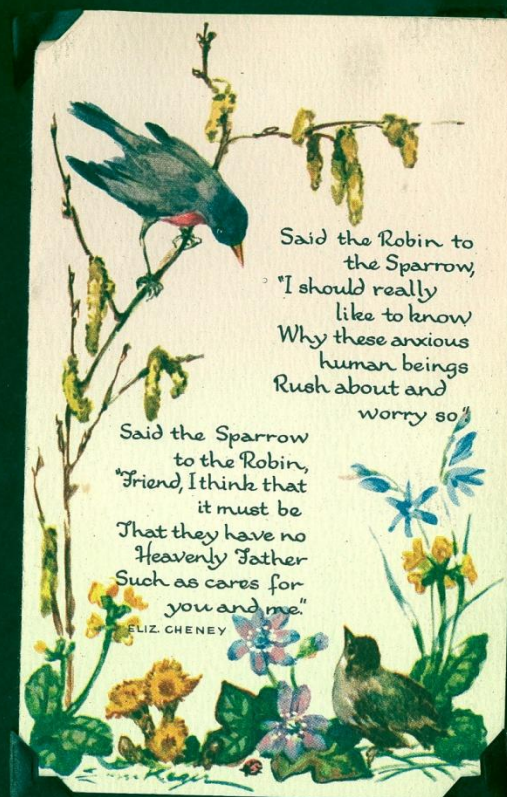 Said the Robin to
the Sparrow,
"I should really
like to know
Why these anxious
human beings
Rush about and
worry so."
Said the Sparrow
to the Robin,
"Friend, I think that
it must be
That they have no
Heavenly Father
Such as cares for
you and me."
ELIZ. CHENEY